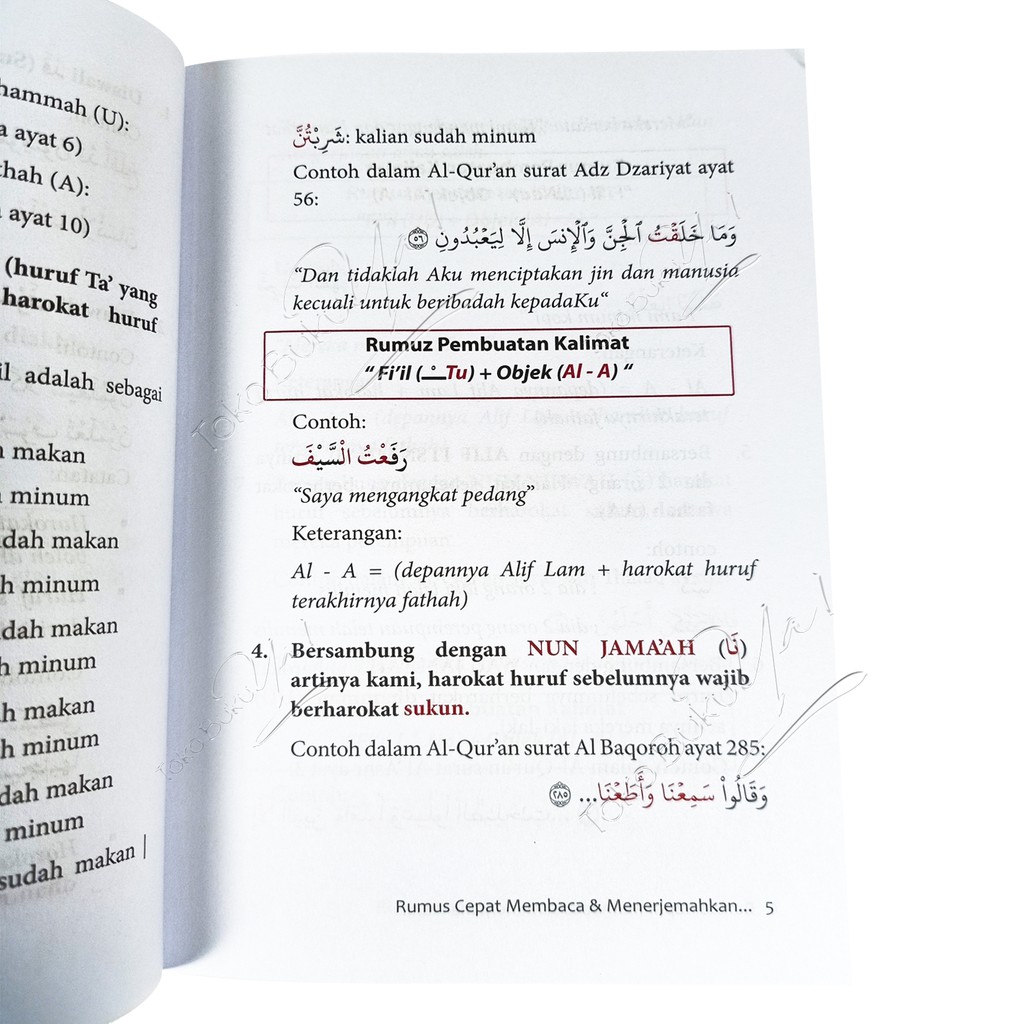 hammah (U):
ayat 6)
hah (A):
ayat 10)
(huruf Ta’ yang
harokat huruf
adalah sebagai
makan
minum
dah makan
h minum
dah makan
h minum
h makan
h minum
dah makan
minum
sudah makan
شَرِبْتُنَّ: kalian sudah minum
Contoh dalam Al-Qur’an surat Adz Dzariyat ayat
56:
وَمَا خَلَقْتُ ٱلْجِنَّ وَٱلْإِنسَ إِلَّا لِيَعْبُدُونِ ٥٦
“Dan tidaklah Aku menciptakan jin dan manusia
kecuali untuk beribadah kepadaKu“
Rumuz Pembuatan Kalimat
“ Fi’il (ـْـTu) + Objek (Al - A) “
Contoh:
رَفَعْتُ السَّيْفَ
“Saya mengangkat pedang”
Keterangan:
Al - A = (depannya Alif Lam + harokat huruf
terakhirnya fathah)
4. Bersambung dengan NUN JAMA’AH (نَا)
artinya kami, harokat huruf sebelumnya wajib
berharokat sukun.
Contoh dalam Al-Qur’an surat Al Baqoroh ayat 285:
وَقَالُوا۟ سَمِعْنَا وَأَطَعْنَا... ٢٨٥
Rumus Cepat Membaca & Menerjemahkan... 5